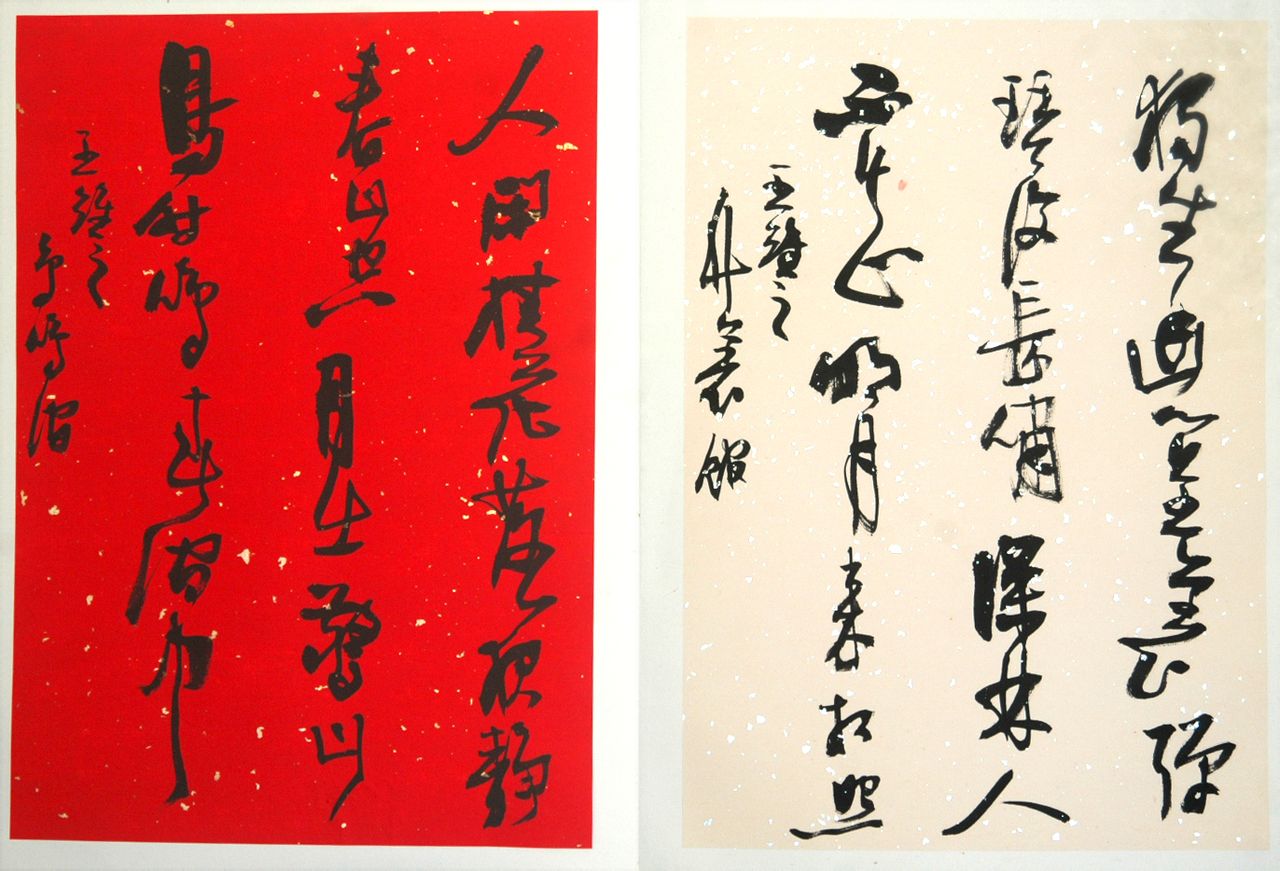 獨坐幽篁裏彈
琴復長嘯深林人
不知明月來相照
王維之
竹裏館
人閑桂花落夜靜
春山空月出驚山
鳥時鳴春澗中
王維之
鳥鳴澗